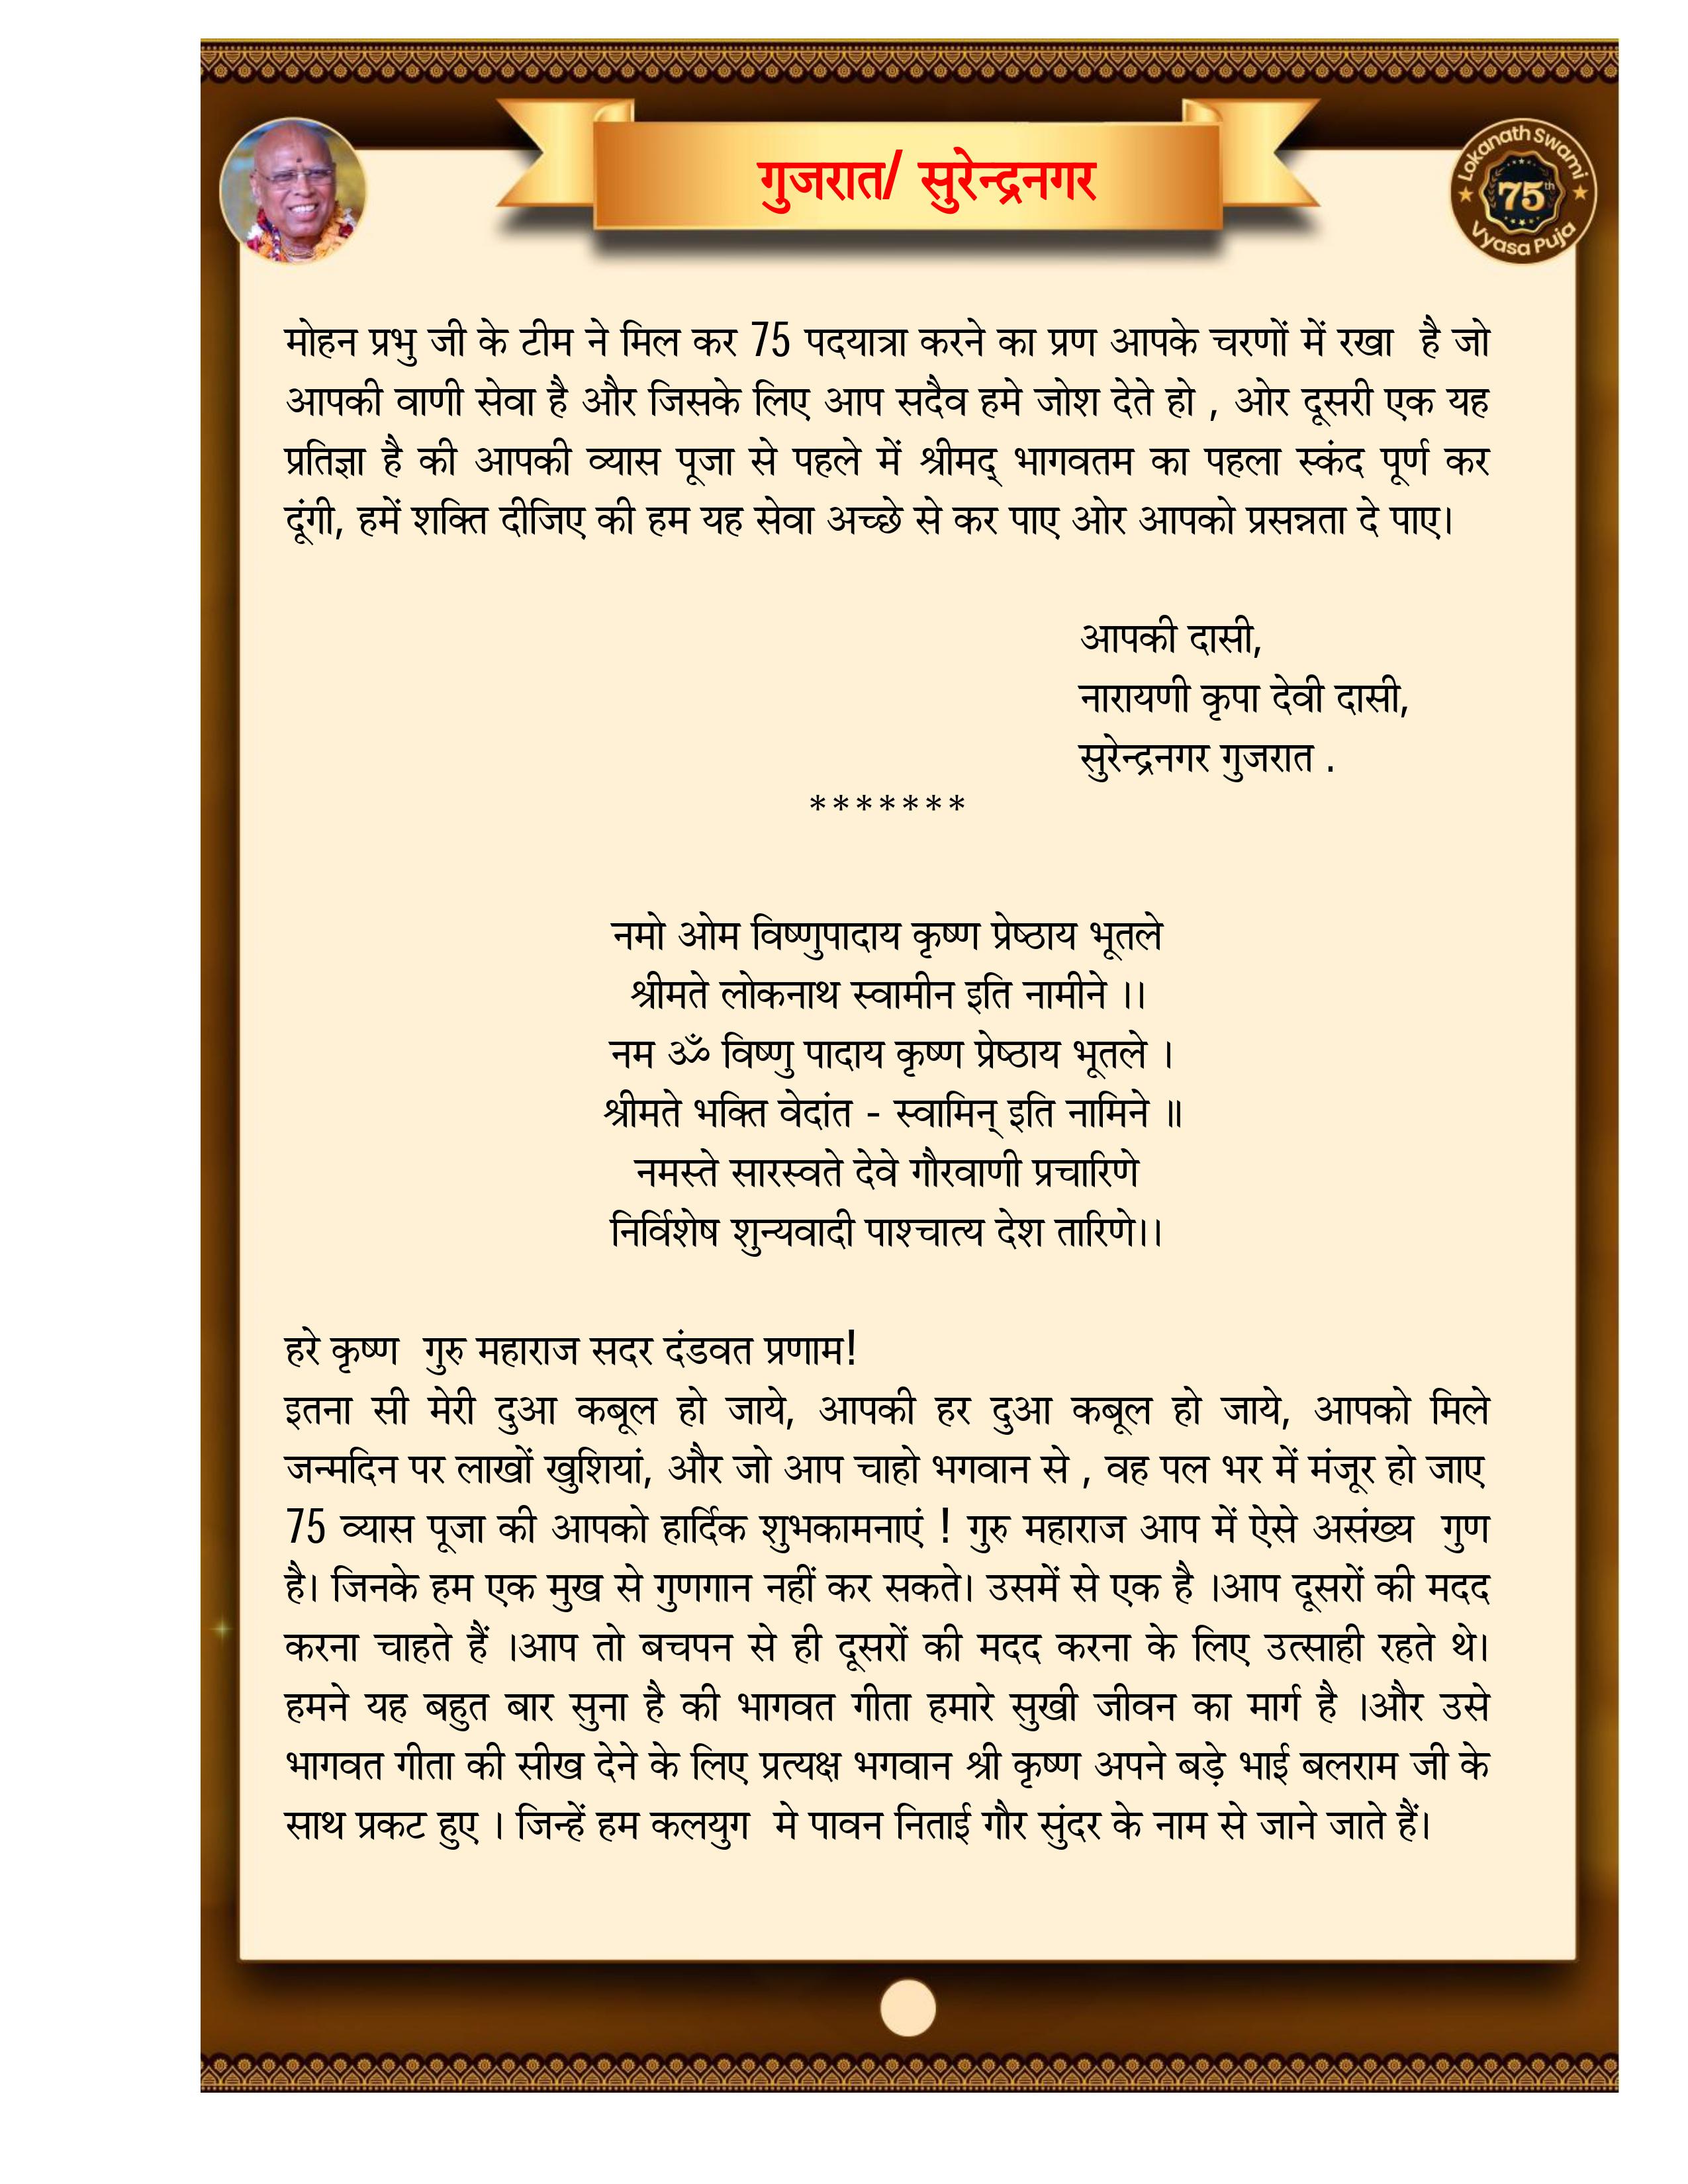 गुजरात/ सुरेन्द्रनगर
Lokanath Swami
75th
Vyasa Puja
मोहन प्रभु जी के टीम ने मिल कर 75 पदयात्रा करने का प्रण आपके चरणों में रखा  है जो
आपकी वाणी सेवा है और जिसके लिए आप सदैव हमे जोश देते हो , ओर दूसरी एक यह
प्रतिज्ञा है की आपकी व्यास पूजा से पहले में श्रीमद् भागवतम का पहला स्कंद पूर्ण कर
दूंगी, हमें शक्ति दीजिए की हम यह सेवा अच्छे से कर पाए ओर आपको प्रसन्नता दे पाए।
आपकी दासी,
नारायणी कृपा देवी दासी,
सुरेन्द्रनगर गुजरात .
*******
नमो ओम विष्णुपादाय कृष्ण प्रेष्ठाय भूतले
श्रीमते लोकनाथ स्वामीन इति नामीने ।।
नम ॐ विष्णु पादाय कृष्ण प्रेष्ठाय भूतले ।
श्रीमते भक्ति वेदांत - स्वामिन् इति नामिने ॥
नमस्ते सारस्वते देवे गौरवाणी प्रचारिणे
निर्विशेष शुन्यवादी पाश्चात्य देश तारिणे।।
हरे कृष्ण  गुरु महाराज सदर दंडवत प्रणाम!
इतना सी मेरी दुआ कबूल हो जाये, आपकी हर दुआ कबूल हो जाये, आपको मिले
जन्मदिन पर लाखों खुशियां, और जो आप चाहो भगवान से , वह पल भर में मंजूर हो जाए
75 व्यास पूजा की आपको हार्दिक शुभकामनाएं ! गुरु महाराज आप में ऐसे असंख्य  गुण
है। जिनके हम एक मुख से गुणगान नहीं कर सकते। उसमें से एक है ।आप दूसरों की मदद
करना चाहते हैं ।आप तो बचपन से ही दूसरों की मदद करना के लिए उत्साही रहते थे।
हमने यह बहुत बार सुना है की भागवत गीता हमारे सुखी जीवन का मार्ग है ।और उसे
भागवत गीता की सीख देने के लिए प्रत्यक्ष भगवान श्री कृष्ण अपने बड़े भाई बलराम जी के
साथ प्रकट हुए । जिन्हें हम कलयुग  मे पावन निताई गौर सुंदर के नाम से जाने जाते हैं।